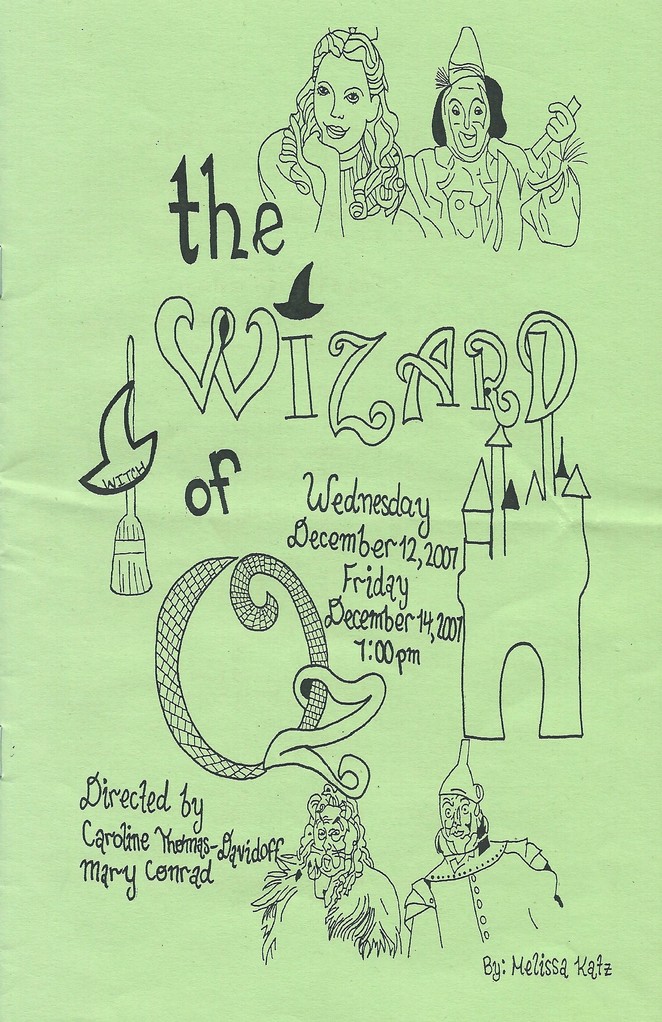 the
WIZARD
of
OZ
WITCH
Wednesday
December 12, 2007
Friday
December 14, 2007
7:00pm
Directed by
Caroline Thomas-Davidoff
Mary Conrad
By: Melissa Katz